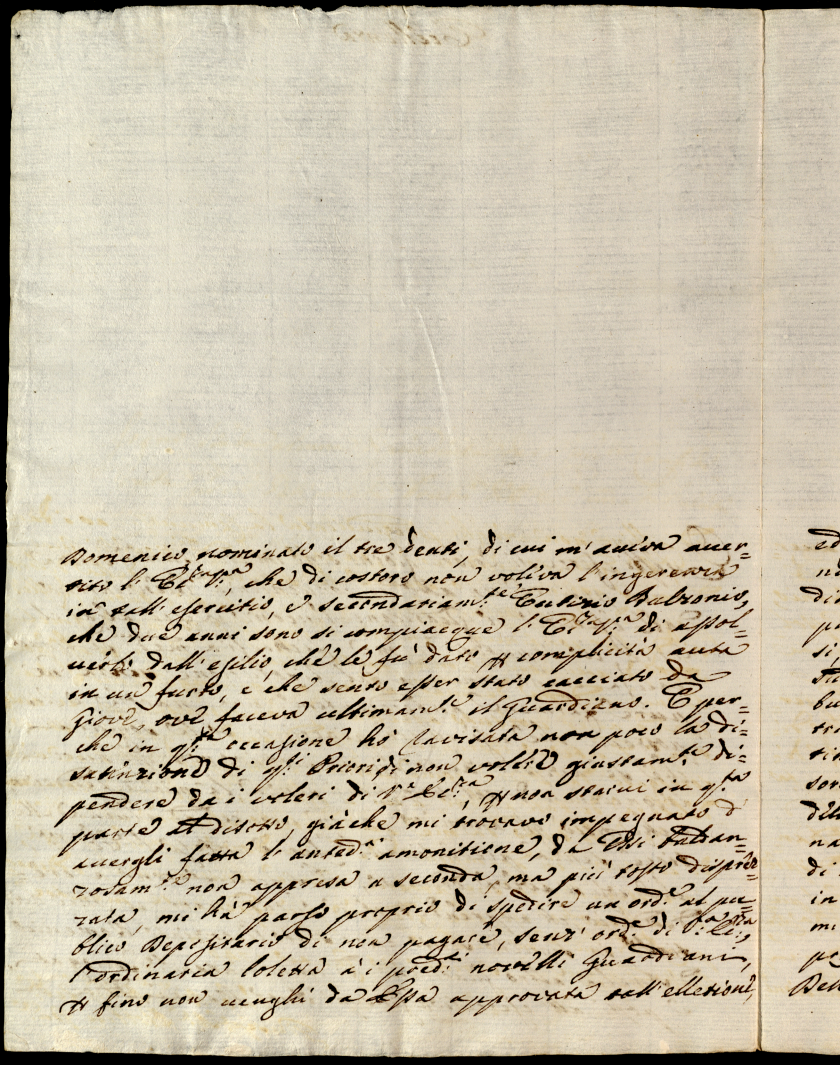 Domenico nominato il tre denti, di cui m'aveva auer=
tito l'Ecc.za V.ra, che di costoro non voleva l'ingerenza
in tall'esercitio, e secondariam.te Eutizio Balzonio,
che due anni sono si compiacque l'Ecc.za V.ra di assol=
uerlo dall'esilio, che le fù dato p complicità auta
in un furto, e che sento esser stato cacciato da
Giove, ove faceva ultimam.te il Guardiano. E per=
che in q.sta occasione hò ravisata non poco la di=
satinzione di q.sti Priori di non voler giustam.te di=
pendere da i voleri di V.ra Ecc.za, p non starvi in q.sta
parte al disotto, giàche mi trovavo impegnato d
avergli fatta l'anted.a amonitione, da Essi baldan=
zosam.te non appresa a seconda, ma più tosto dispre=
zata, mi hà parso proprio di spedire un ord.e al pu=
blico Depositario di non pagare, senz'ord.e di V.ra Ecc.za,
l'ordinaria boletta à i pred.i novelli Guardiani,
p fino non venghi da Essa approvata tall'ellezione,
ed
n
di
p
si
bu
tr
son
na
di
in
mi
pe
Dell